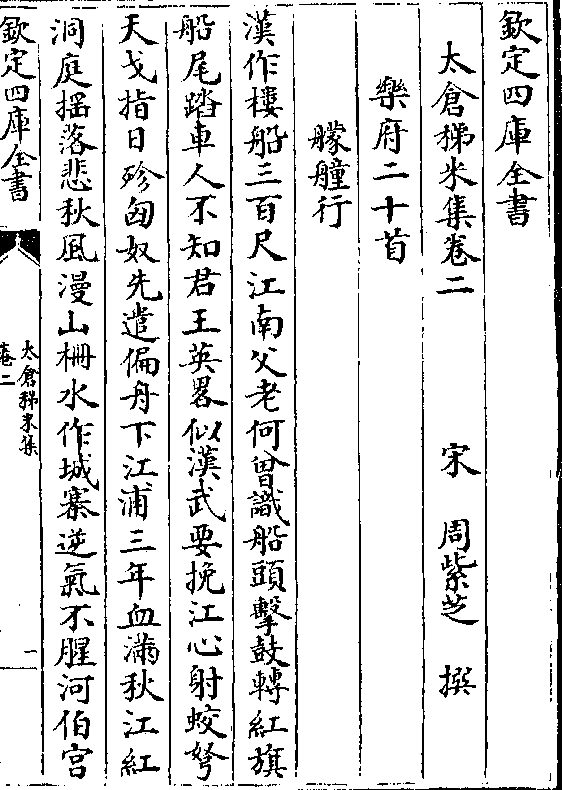 欽定四庫全書
太倉稊米集卷二　宋　周紫芝　撰
樂府二十首
艨艟行
漢作樓船三百尺江南父老何曾識船頭擊鼓轉紅旗
船尾踏車人不知君王英畧似漢武要挽江心射蛟弩
天戈指日殄匈奴先遣偏舟下江浦三年血滿秋江紅
洞庭揺落悲秋風漫山柵水作城寨逆氣不腥河伯宫
欽定四庫全書
太倉稊米集
卷二
一